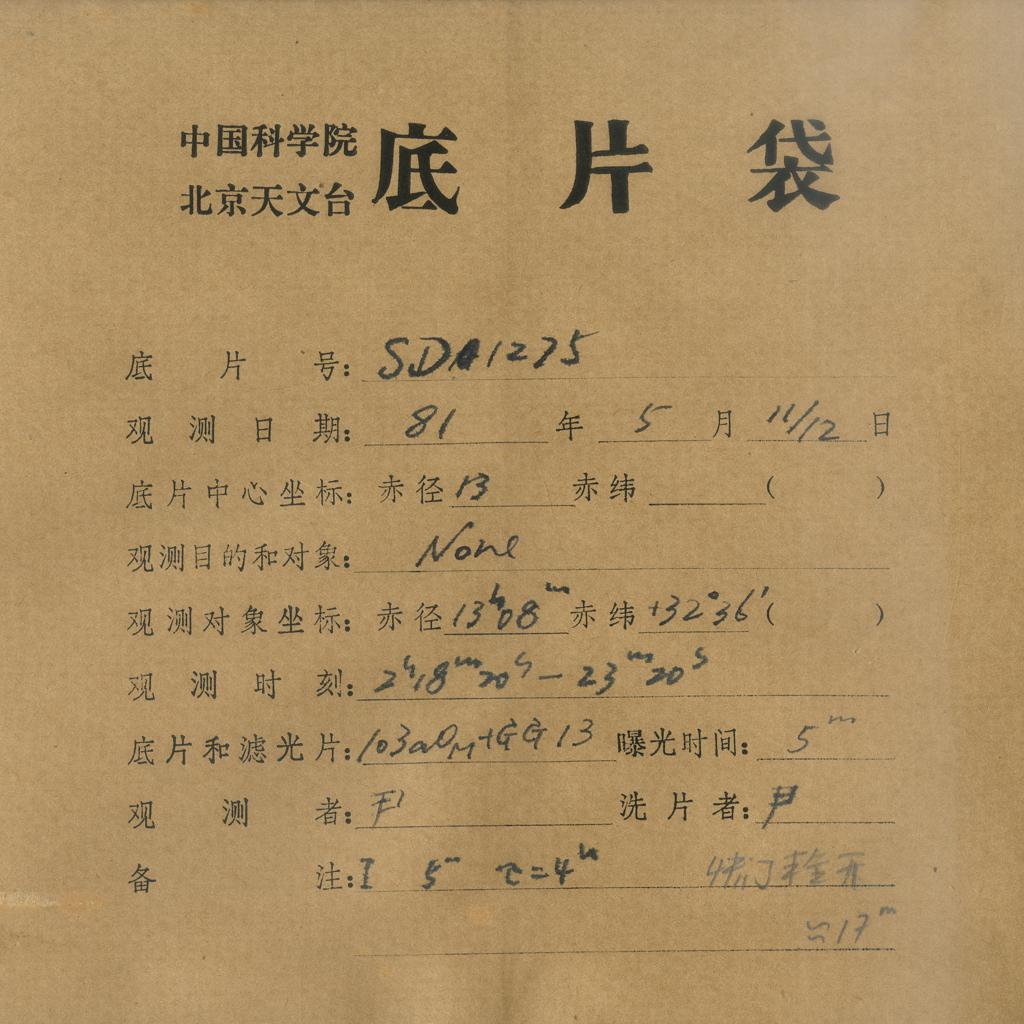 中国科学院
北京天文台
底片袋
底片号: SDA1275
观测日期: 81年5月11/12日
底片中心坐标: 赤径13 赤纬 ( )
观测目的和对象: None
观测对象坐标: 赤径13h08m 赤纬+32°36′( )
观测时刻: 2h18m20s—23m20s
底片和滤光片: 103aOM+GG13 曝光时间: 5m
观测者: 尹 洗片者: 尹
备注: I 5m τ=4h 快门未全开
≈17m